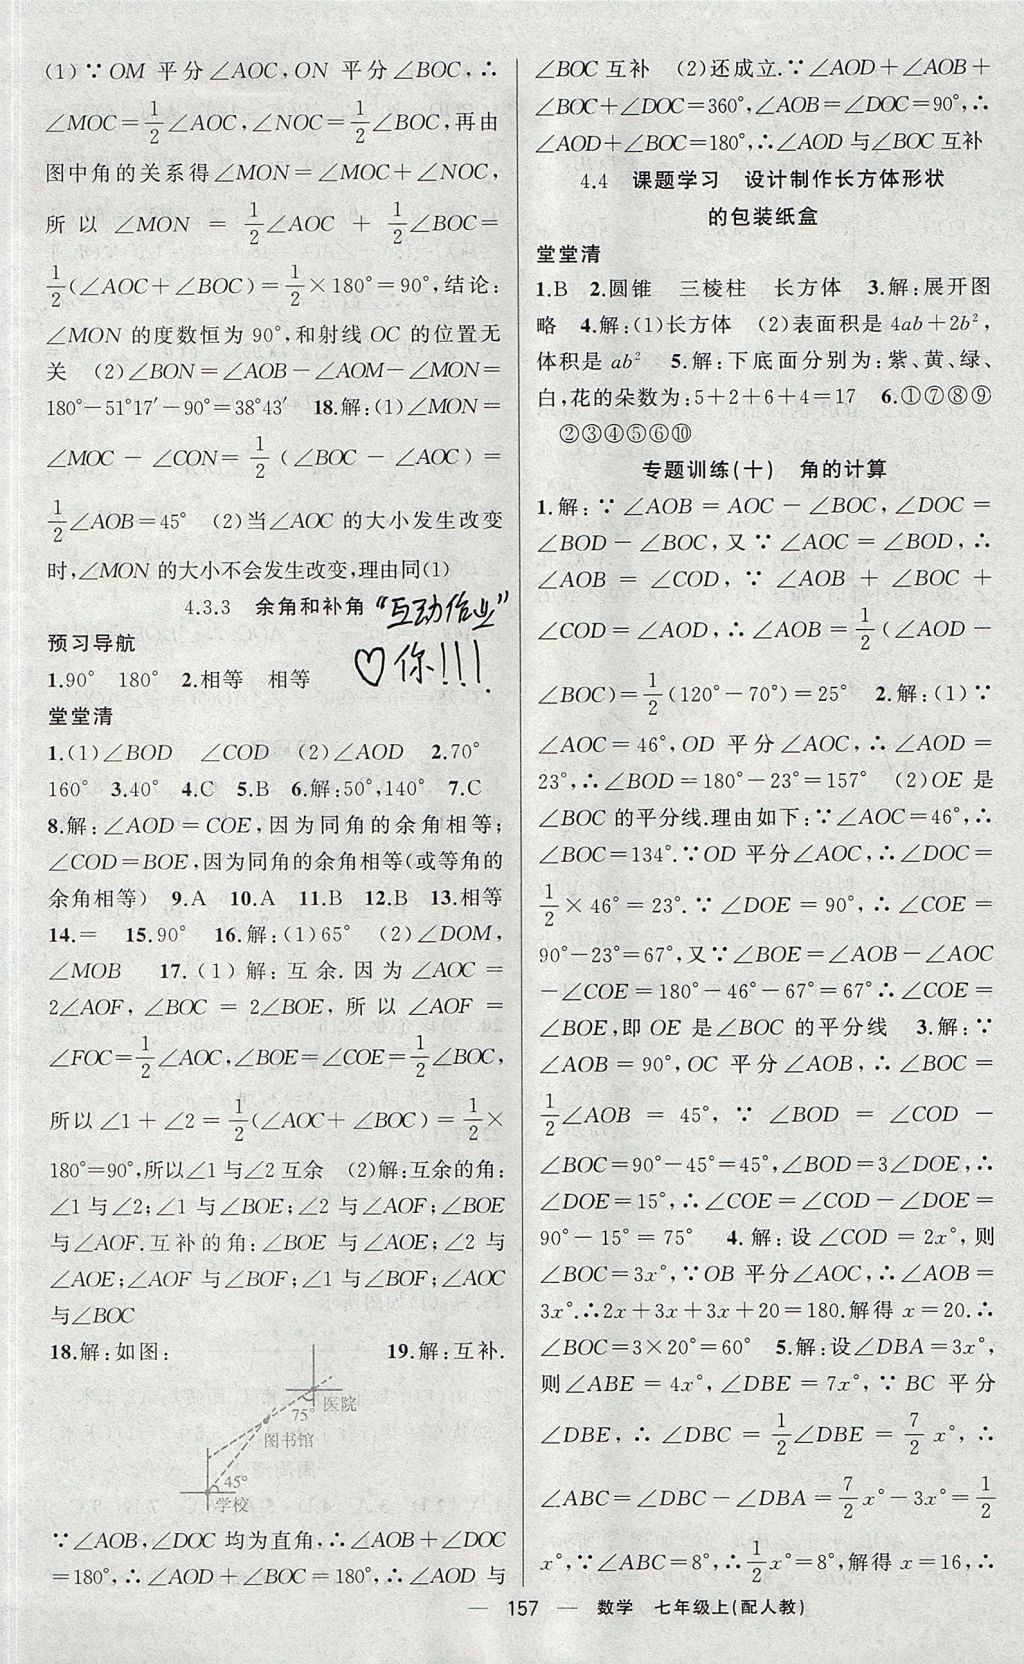 (1)∵OM 平分∠AOC,ON 平分∠BOC,∴
∠MOC=1/2∠AOC,∠NOC=1/2∠BOC,再由
图中角的关系得∠MON=∠MOC+∠NOC,
所以 ∠MON = 1/2∠AOC + 1/2∠BOC=
1/2(∠AOC+∠BOC)=1/2×180°=90°,结论:
∠MON 的度数恒为 90°,和射线 OC 的位置无
关 (2)∠BON=∠AOB-∠AOM-∠MON=
180°-51°17′-90°=38°43′ 18.解:(1)∠MON=
∠MOC-∠CON=1/2(∠BOC-∠AOC)=
1/2∠AOB=45° (2)当∠AOC 的大小发生改变
时,∠MON的大小不会发生改变,理由同(1)
4.3.3 余角和补角
“互动作业”
♡你!!!
预习导航
1.90° 180° 2.相等 相等
堂堂清
1.(1)∠BOD ∠COD (2)∠AOD 2.70°
160° 3.40° 4.C 5.B 6.解:50°,140° 7.C
8.解:∠AOD=COE,因为同角的余角相等;
∠COD=BOE,因为同角的余角相等(或等角的
余角相等) 9.A 10.A 11.B 12.B 13.相等
14.= 15.90° 16.解:(1)65° (2)∠DOM,
∠MOB 17.(1)解:互余.因为∠AOC=
2∠AOF,∠BOC=2∠BOE,所以∠AOF=
∠FOC=1/2∠AOC,∠BOE=∠COE=1/2∠BOC,
所以∠1+∠2=1/2(∠AOC+∠BOC)=1/2×
180°=90°,所以∠1与∠2互余 (2)解:互余的角:
∠1与∠2;∠1与∠BOE;∠2与∠AOF;∠BOE
与∠AOF.互补的角:∠BOE 与∠AOE;∠2 与
∠AOE;∠AOF 与∠BOF;∠1与∠BOF;∠AOC
与∠BOC
18.解:如图: 19.解:互补.
75° 医院
图书馆
45°
学校
∵∠AOB,∠DOC 均为直角,∴∠AOB+∠DOC
=180°,∴∠AOD+∠BOC=180°,∴∠AOD 与
∠BOC 互补 (2)还成立.∵∠AOD+∠AOB+
∠BOC+∠DOC=360°,∠AOB=∠DOC=90°,∴
∠AOD+∠BOC=180°,∴∠AOD与∠BOC互补
4.4 课题学习 设计制作长方体形状
的包装纸盒
堂堂清
1.B 2.圆锥 三棱柱 长方体 3.解:展开图
略 4.解:(1)长方体 (2)表面积是 4ab+2b²,
体积是 ab² 5.解:下底面分别为:紫、黄、绿、
白,花的朵数为:5+2+6+4=17 6.①⑦⑧⑨
②③④⑤⑥⑩
专题训练(十) 角的计算
1.解:∵∠AOB=AOC-∠BOC,∠DOC=
∠BOD-∠BOC,又∵∠AOC=∠BOD,∴
∠AOB = ∠COD. ∵∠AOB + ∠BOC +
∠COD=∠AOD,∴∠AOB=1/2(∠AOD-
∠BOC)=1/2(120°-70°)=25° 2.解:(1)∵
∠AOC=46°,OD 平分∠AOC,∴∠AOD=
23°,∴∠BOD=180°-23°=157° (2)OE 是
∠BOC 的平分线.理由如下:∵∠AOC=46°,∴
∠BOC=134°.∵OD 平分∠AOC,∴∠DOC=
1/2×46°=23°.∵∠DOE=90°,∴∠COE=
90°-23°=67°,又∵∠BOE=∠AOB-∠AOC
-∠COE=180°-46°-67°=67°∴∠COE=
∠BOE,即 OE 是∠BOC 的平分线 3.解:∵
∠AOB=90°,OC 平分∠AOB,∴∠BOC=
1/2∠AOB = 45°, ∵ ∠BOD = ∠COD -
∠BOC=90°-45°=45°,∠BOD=3∠DOE,∴
∠DOE=15°,∴∠COE=∠COD-∠DOE=
90°-15°=75° 4.解:设∠COD=2x°,则
∠BOC=3x°,∵OB 平分∠AOC,∴∠AOB=
3x°.∴2x+3x+3x+20=180.解得 x=20.∴
∠BOC=3×20°=60° 5.解:设∠DBA=3x°,
则∠ABE=4x°,∠DBE=7x°,∵BC 平分
∠DBE,∴∠DBC=1/2∠DBE=7/2x°,∴
∠ABC=∠DBC-∠DBA=7/2x°-3x°=1/2
x°,∵∠ABC=8°,∴1/2x°=8°,解得 x=16,∴
— 157 — 数学 七年级上(配人教)